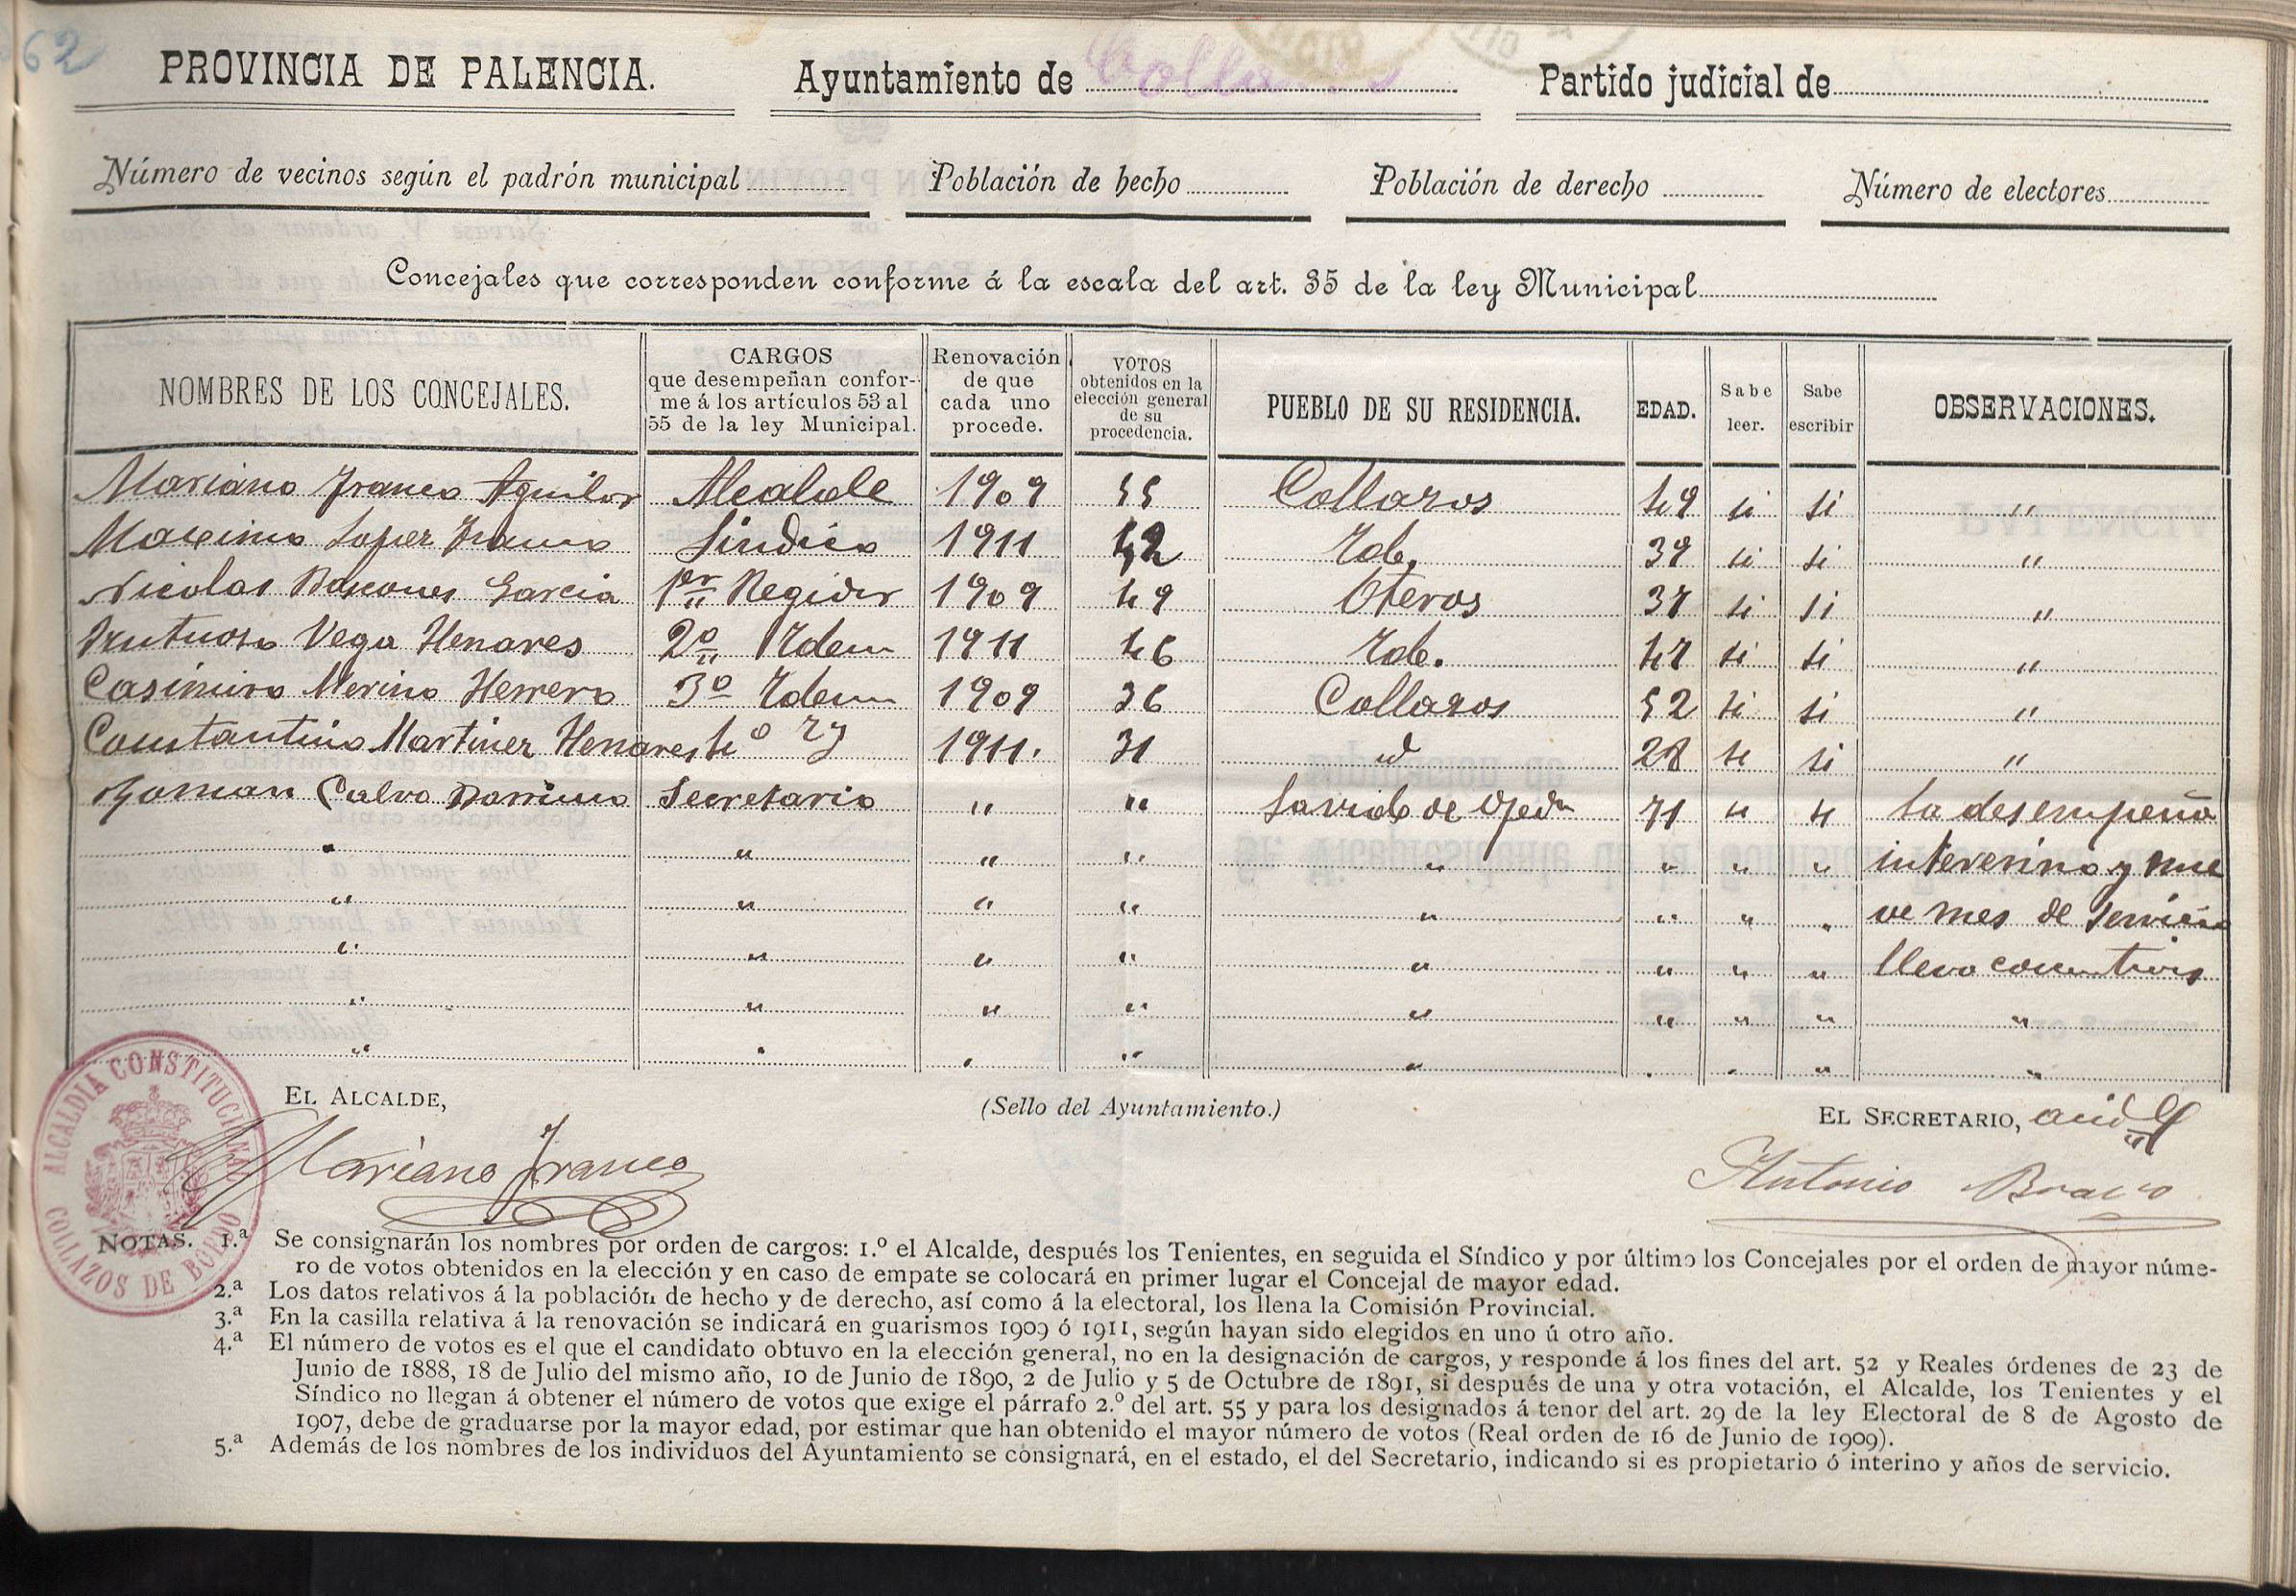 62
PROVINCIA DE PALENCIA. Ayuntamiento de Collazos Partido judicial de
Número de vecinos según el padrón municipal Población de hecho Población de derecho Número de electores
Concejales que corresponden conforme á la escala del art. 35 de la ley Municipal
NOMBRES DE LOS CONCEJALES. CARGOS que desempeñan conforme á los artículos 53 al 55 de la ley Municipal. Renovación de que cada uno procede. VOTOS obtenidos en la elección general de su procedencia. PUEBLO DE SU RESIDENCIA. EDAD. Sabe leer. Sabe escribir OBSERVACIONES.
Mariano Franco Aguilar Alcalde 1909 55 Collazos 49 si si "
Maximo Lopez Franco Sindico 1911 52 Yde. 39 si si "
Nicolas Bascones Garcia 1er Regidor 1909 49 Oteros 37 si si "
Frutuoso Vega Henares 2º Ydem 1911 46 Yde. 47 si si "
Casimiro Merino Herrero 3º Ydem 1909 36 Collazos 52 si si "
Constantino Martinez Henares 4º Yd 1911. 31 id 28 si si "
Roman Calvo Secretario " " de Ojeda 71 " " La desempeña
" " " " " " " " interino y nue
" " " " " " " " ve mes de servicio
" " " " " " " " lleva
" " " " " " " " "
" " " " " " " " "
EL ALCALDE, (Sello del Ayuntamiento.) EL SECRETARIO,
Mariano Franco Antonio Bravo
ALCALDIA CONSTITUCIONAL
COLLAZOS DE BOEDO
NOTAS. 1.ª Se consignarán los nombres por orden de cargos: 1.º el Alcalde, después los Tenientes, en seguida el Síndico y por último los Concejales por el orden de mayor núme-
ro de votos obtenidos en la elección y en caso de empate se colocará en primer lugar el Concejal de mayor edad.
2.ª Los datos relativos á la población de hecho y de derecho, así como á la electoral, los llena la Comisión Provincial.
3.ª En la casilla relativa á la renovación se indicará en guarismos 1909 ó 1911, según hayan sido elegidos en uno ú otro año.
4.ª El número de votos es el que el candidato obtuvo en la elección general, no en la designación de cargos, y responde á los fines del art. 52 y Reales órdenes de 23 de
Junio de 1888, 18 de Julio del mismo año, 10 de Junio de 1890, 2 de Julio y 5 de Octubre de 1891, si después de una y otra votación, el Alcalde, los Tenientes y el
Síndico no llegan á obtener el número de votos que exige el párrafo 2.º del art. 55 y para los designados á tenor del art. 29 de la ley Electoral de 8 de Agosto de
1907, debe de graduarse por la mayor edad, por estimar que han obtenido el mayor número de votos (Real orden de 16 de Junio de 1909).
5.ª Además de los nombres de los individuos del Ayuntamiento se consignará, en el estado, el del Secretario, indicando si es propietario ó interino y años de servicio.